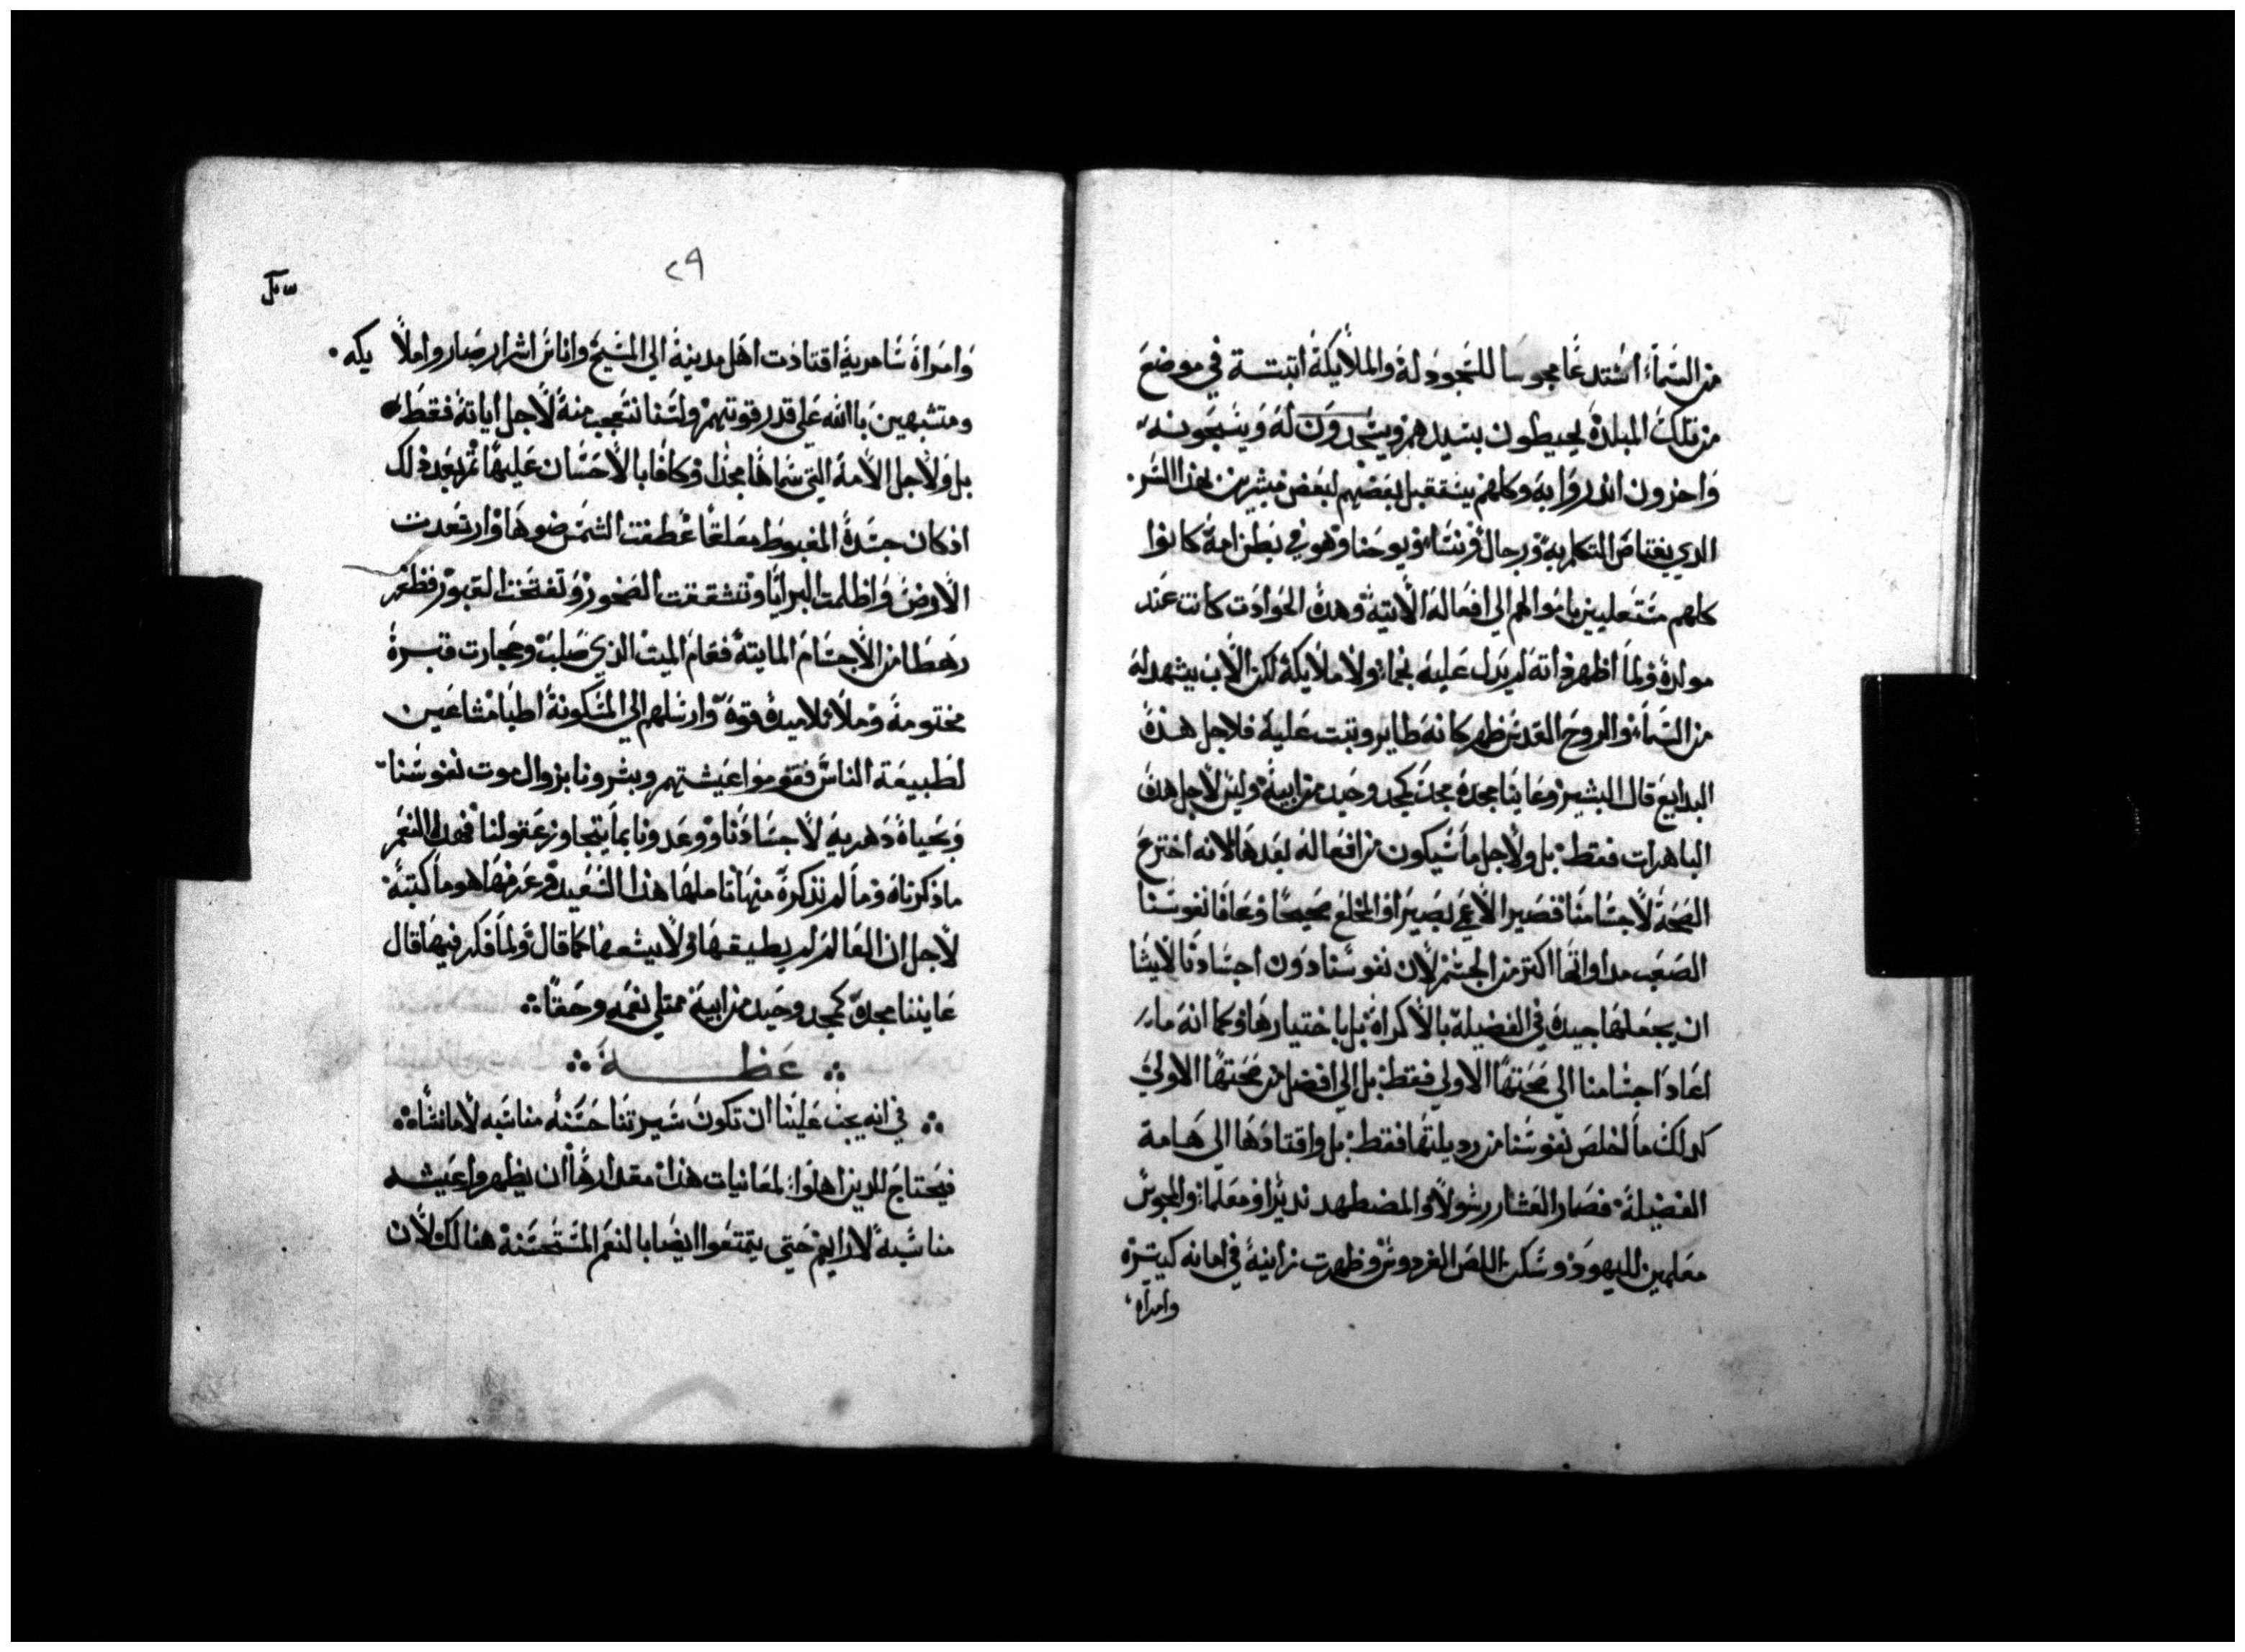 من السماء استدعا مجوسا للسجود له والملايكة اتبتة في موضع
من تلك البلدة يحيطون بسيدهم ويسجدون له ويسبحونه
واخرون اندروا به وكلهم يستقبل بعضهم لبعض مبشرين بهدا السر
الدي يغتاص التكلم به ورجال ونسا ويوحنا وهو في بطن امه كانوا
كلهم الي افعاله الاتية وهده الحوادت كانت عند
مولده ولما اظهر داته لم يدل عليه نجما ولا ملايكة لكن الاب يشهد له
من السما والروح القدس ظهر كانه طاير وتبت عليه فلاجل هده
البدايع قال البشير وعاينا مجده مجد كمجد وحيد من ابيه وليس لاجل هده
الباهرات فقط بل ولاجل ما سيكون من افعاله بعدها لانه اخترع
الصحة لاجسامنا فصير الاعمي بصيرا والمخلع صحيحا وعافا نفوسنا
الصعب مداواتها اكتر من الجسم لان نفوسنا دون اجسادنا لايشا
ان يجعلها جيدة في الفضيلة بالاكراه بل باختيارها وكما انه ما
اعاد اجسامنا الي صحتها الاولي فقط بل الي افضل من صحتها الاولي
كدلك ما لخلص نفوسنا من رديلتها فقط بل واقتادها الي هامة
الفضيلة فصار العشار رسولا والمضطهد نديرا ومعلما والمجوس
معلمين لليهود وسكن اللص الفردوس وظهرت زانية في امانه كبيرة
وامراه
٢٩
وامراة سامرية اقتادت اهل مدينة الي المسيح واناس اشرار صاروا ملايكه
ومتشبهين بالله علي قدر قوتهم ولسنا نتعجب منه لاجل اياته فقط
بل ولاجل الالام التي سماها مجدا وكافا بالاحسان عليها تم بعد دلك
اد كان جسده المغبوط معلقا عطفت الشمس ضوها وارتعدت
الارض واظلمت البرايا وتشققت الصخور وتفتحت القبور فظهر
رهطا من الاجسام المايته فقام الميت الذي صلب وحجارت قبره
مختومة وملا تلاميده قوة وارسلهم الي المسكونة اطبا مشاعين
لطبيعة الناس فقوموا عيشتهم وبشرونا بزوال موت نفوسنا
وبحياة دهرية لاجسادنا ووعدونا بما يتجاوز عقولنا فهدا النعم
ما ذكرناه وما لم نذكره منها تاملها هذا السعيد وعرفها هو ما كتبه
لاجل ان العالم لم يطيقها ولا يسعها كما قال ولما فكر فيها قال
عايننا مجده كمجد وحيد من ابيه ممتلي نعمه وحقا
عظة
في انه يجب علينا ان تكون سيرتنا حسنه مناسبه لامانتنا
فيحتاج للدين اهلوا لمعانيات هذا مقدارها ان يظهروا عيشه
مناسبة لارايهم حتي يتمتعوا ايضا بالنعم المستحسنة هنالك لان